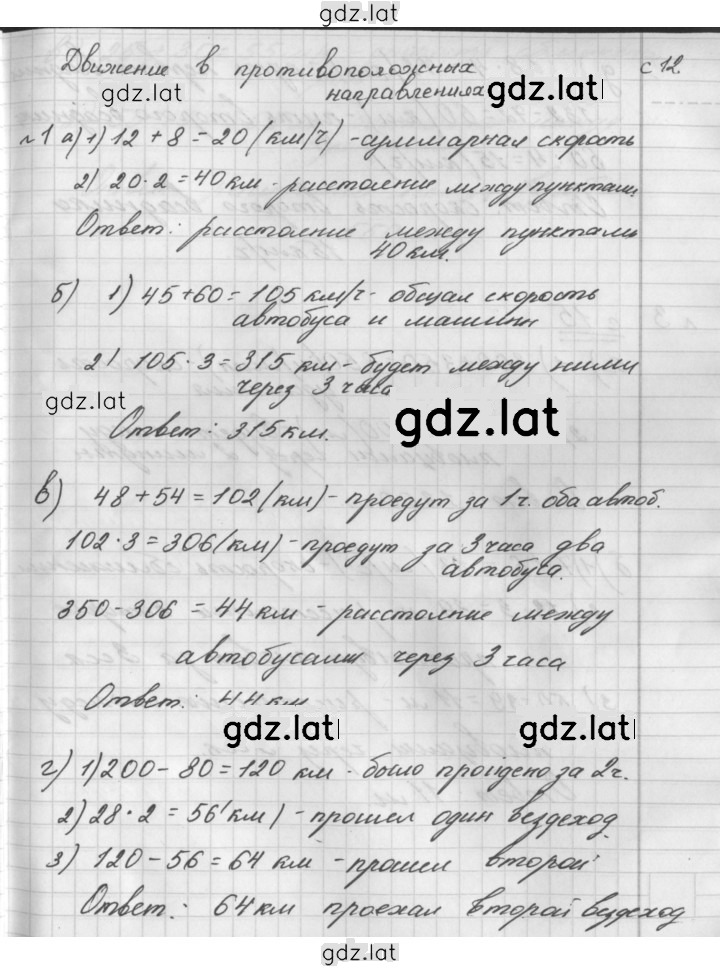 gdz.lat
Движение в противоположных с 12
gdz.lat направлениях gdz.lat
№1 а) 1) 12 + 8 = 20 (км/ч) - суммарная скорость
2) 20 · 2 = 40 км - расстояние между пунктами
Ответ: расстояние между пунктами
40 км.
б) 1) 45 + 60 = 105 км/ч - общая скорость
автобуса и машины
2) 105 · 3 = 315 км - будет между ними
через 3 часа
gdz.lat
Ответ: 315 км. gdz.lat
в) 48 + 54 = 102 (км) - проедут за 1 ч. оба автоб.
102 · 3 = 306 (км) - проедут за 3 часа два
автобуса.
350 - 306 = 44 км - расстояние между
автобусами через 3 часа
Ответ: 44 км
gdz.lat gdz.lat
г) 1) 200 - 80 = 120 км - было пройдено за 2 ч.
2) 28 · 2 = 56 (км) - прошел один вездеход
3) 120 - 56 = 64 км - прошел второй
Ответ: 64 км проехал второй вездеход
gdz.lat